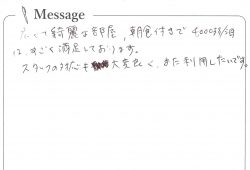 Message
広くて綺麗な部屋、朝食付きで4,000円/1泊
は、すごく満足しております。
スタッフの対応も大変良く、また利用したいです。